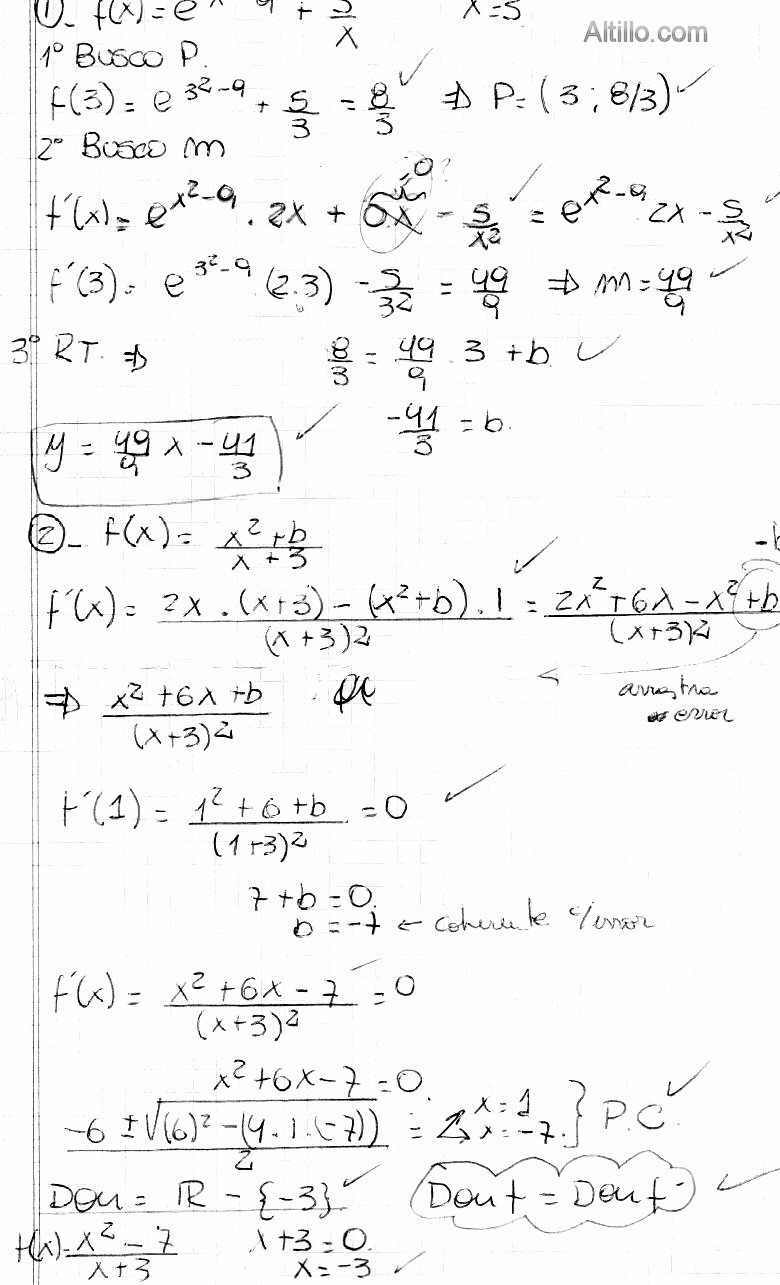 ①- f(x) = e^x -9 + 5/x   x=3
Altillo.com
1° BUSCO P.
f(3) = e^(3²-9) + 5/3 = 8/3 ✓ ⇒ P = (3 ; 8/3) ✓
2° BUSCO m
=0?
f'(x) = e^(x²-9) . 2x + - 5/x² ✓ = e^(x²-9) 2x - 5/x² ✓
f'(3) = e^(3²-9) (2.3) - 5/3² = 49/9 ⇒ m = 49/9 ✓
3° RT. ⇒ 8/3 = 49/9 . 3 + b ✓
-41/3 = b.
y = 49/9 x - 41/3 ✓
②- f(x) = (x² + b)/(x + 3)
-b
f'(x) = (2x . (x+3) - (x²+b) . 1)/(x+3)² ✓ = (2x² + 6x - x² + b)/(x+3)²
arrastra
error
⇒ (x² + 6x + b)/(x+3)²
f'(1) = (1² + 6 + b)/(1+3)² = 0 ✓
7 + b = 0.
b = -7 ← coherente c/error
f'(x) = (x² + 6x - 7)/(x+3)² = 0
x² + 6x - 7 = 0.
(-6 ± √((6)² - (4.1.(-7))))/2 = x = 1 x = -7. } P.C. ✓
Dom = ℝ - {-3} ✓ Dom f = Dom f' ✓
f(x) = (x² - 7)/(x + 3)   x + 3 = 0.
x = -3 ✓